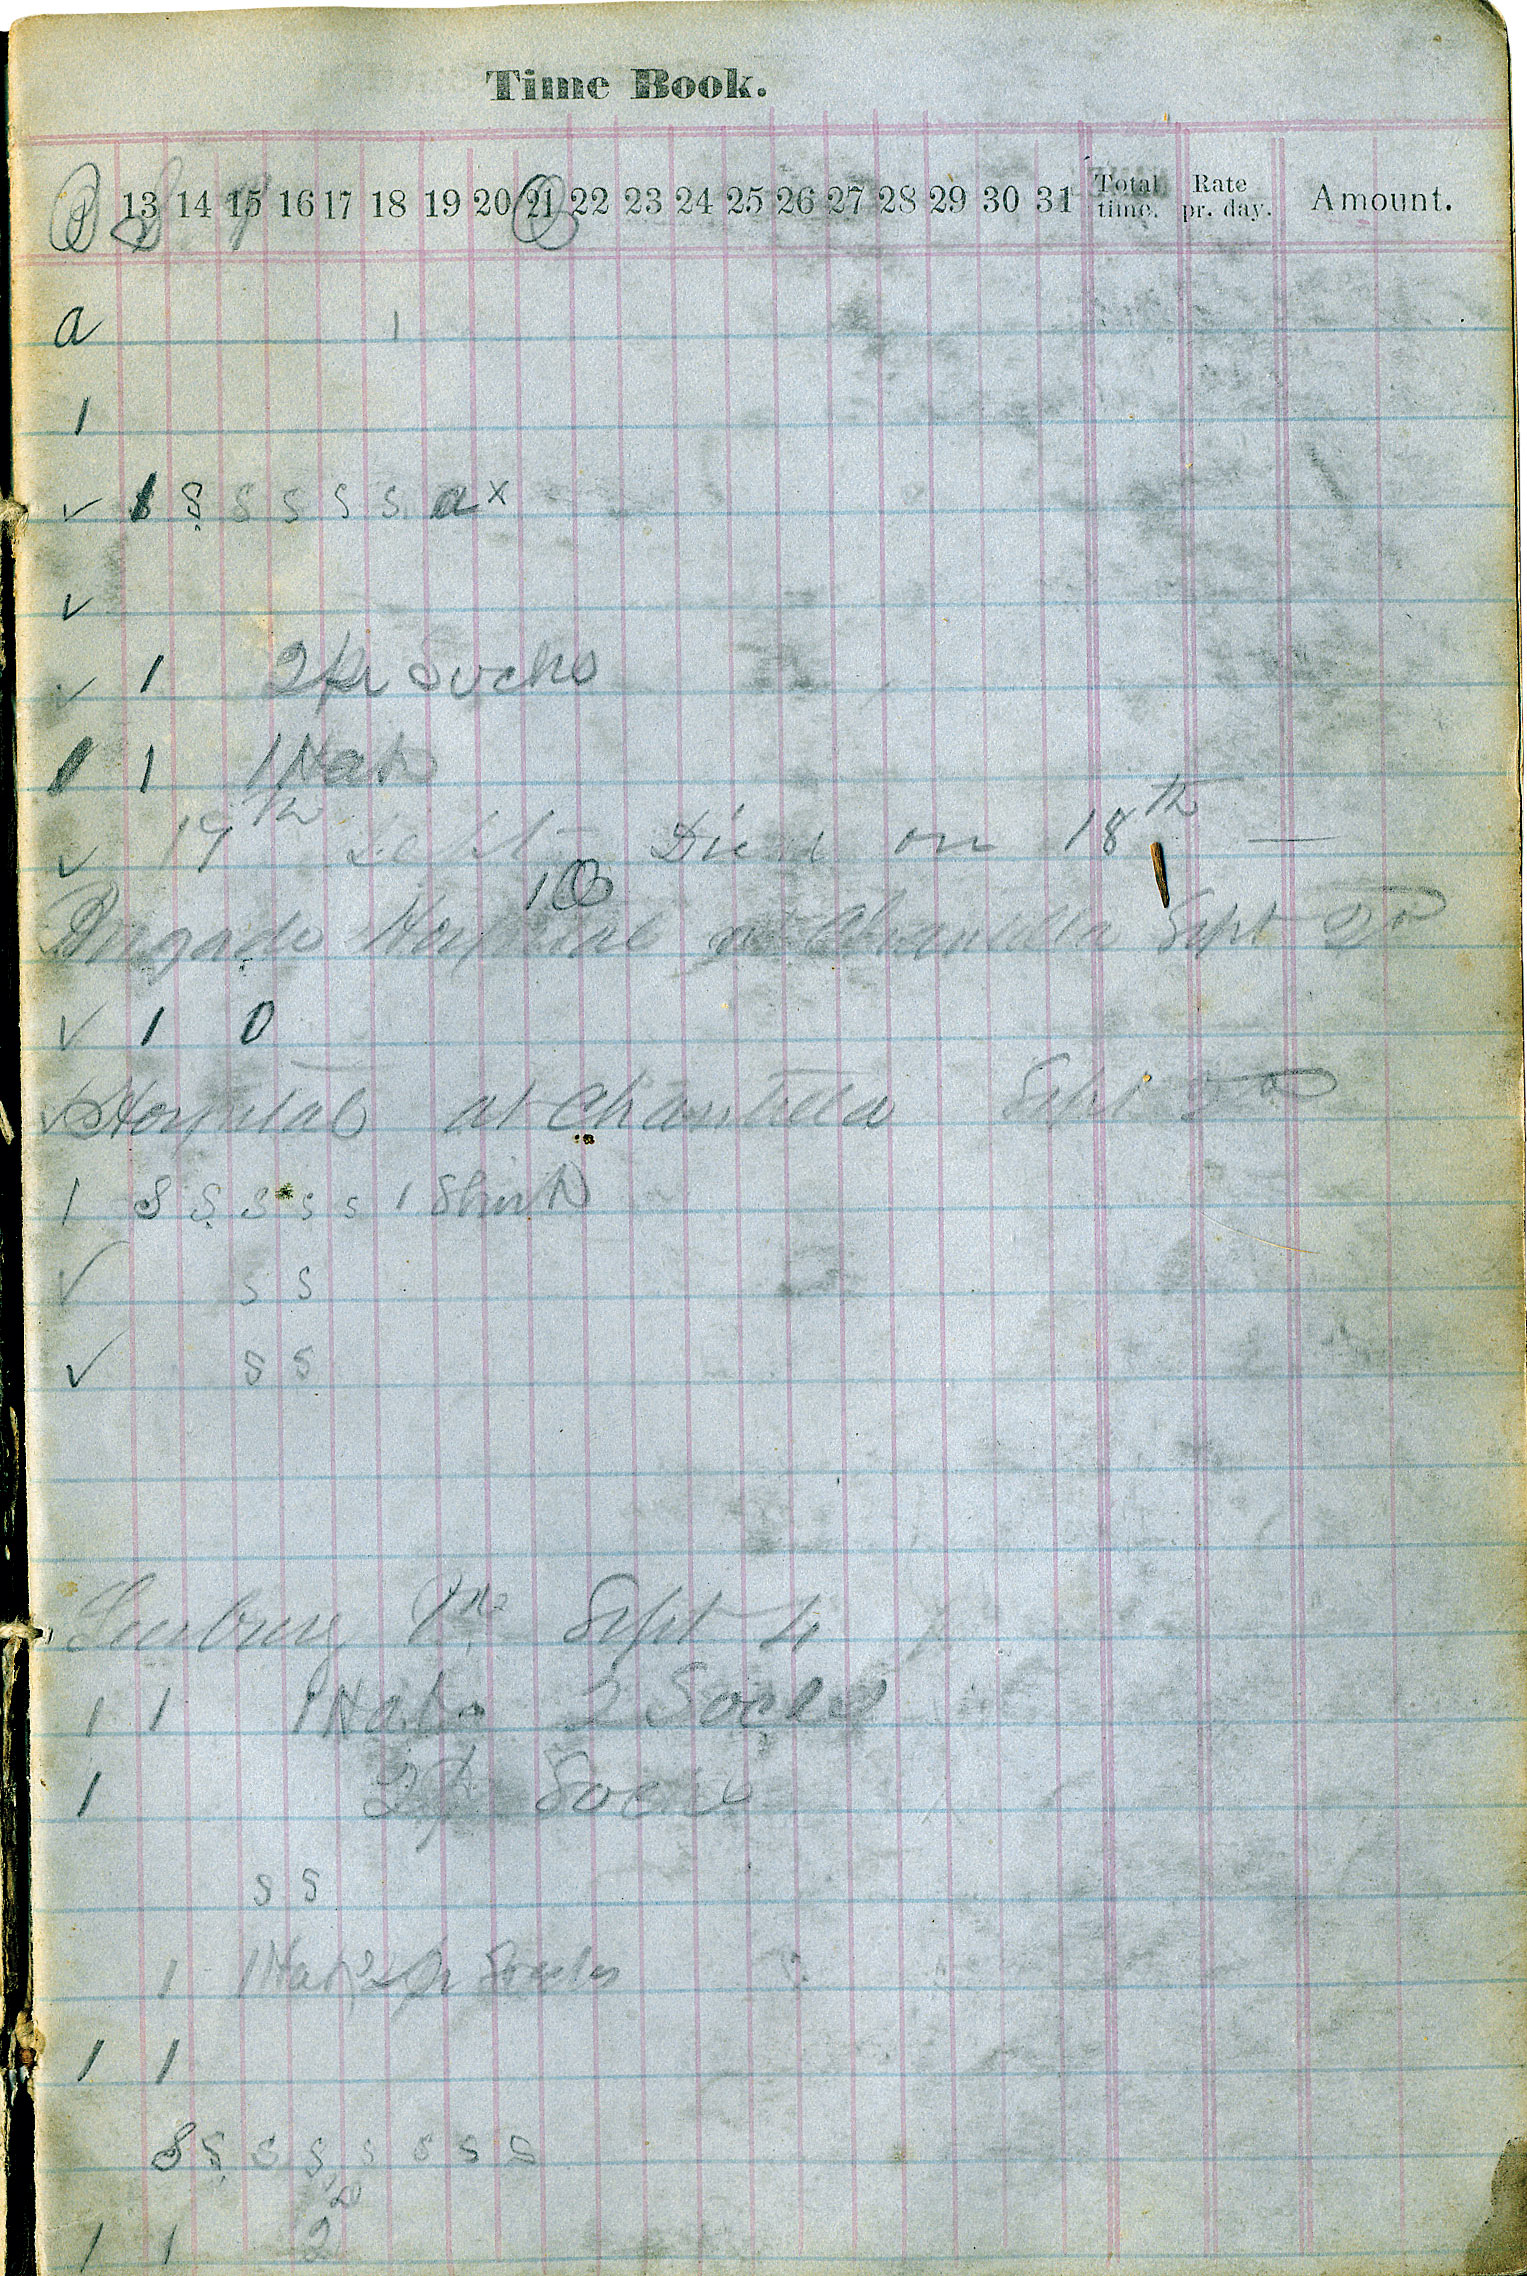 Time Book.
13 14 15 16 17 18 19 20 21 22 23 24 25 26 27 28 29 30 31 Total time. Rate pr. day. Amount.
a 1
1
✓ 1 S S S S S a x
✓
✓ 1 2 pr Socks
1 1 1 Hat
✓ 19th Sept Died on 18th —
10
Brigade Hospital at Chantilla Sept 2d
✓ 1 0
Hospital at Chantilla Sept 2d
1 S S S S S 1 Shirt
✓ S S
✓ S S
Leesburg Va Sept 4
1 1 1 Hat 2 Socks
1 2 pr Socks
S S
1 1 Hat 2 pr Socks
1 1
S S S S S S S S
1 1 2